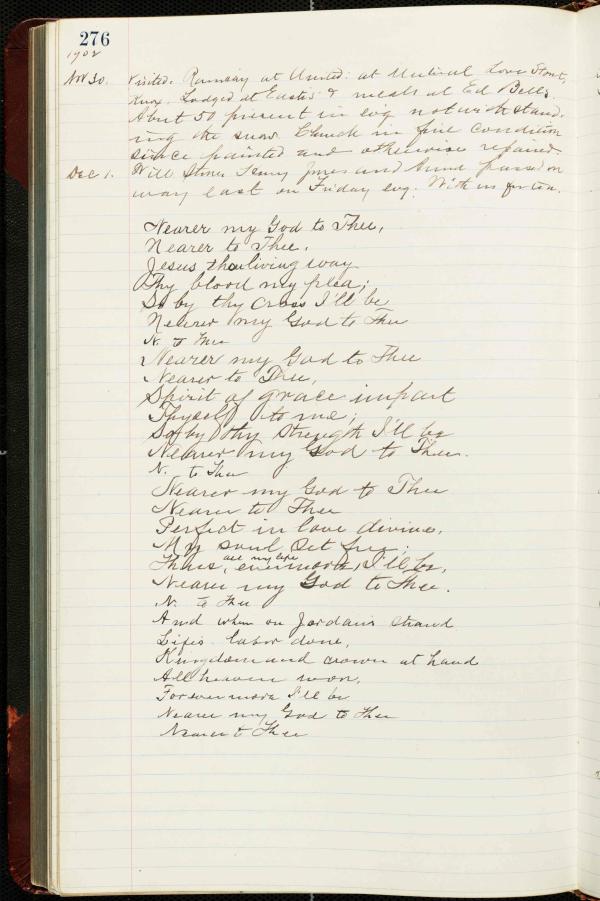 276
1902
Nov 30. Visited. Ramsay at United. at Mutual Love Stone,
Knox. Lodged at Easter's & meals at Ed Bell's.
About 50 present in evg notwithstand-
ing the snow. Church in fine condition
since painted and otherwise repaired.
Dec 1. Will Stone, Henry Jones and Anna passed on
way east on Friday evg. With us for tea.
Nearer my God to Thee,
Nearer to Thee.
Jesus the living way
Thy blood my plea;
So by thy Cross I'll be
Nearer my God to Thee
N. to Thee
Nearer my God to Thee
Nearer to Thee,
Spirit of grace impart
Thyself to me;
So by thy strength I'll be
Nearer my God to Thee.
N. to Thee
Nearer my God to Thee
Nearer to Thee
Perfect in love divine,
My soul set free;
all my life
Thus, evermore, I'll be,
Nearer my God to Thee.
N. to Thee
And when on Jordan's strand
Life's labor done,
Kingdom and crown at hand
All heaven won,
Forevermore I'll be
Nearer my God to Thee
Nearer to Thee